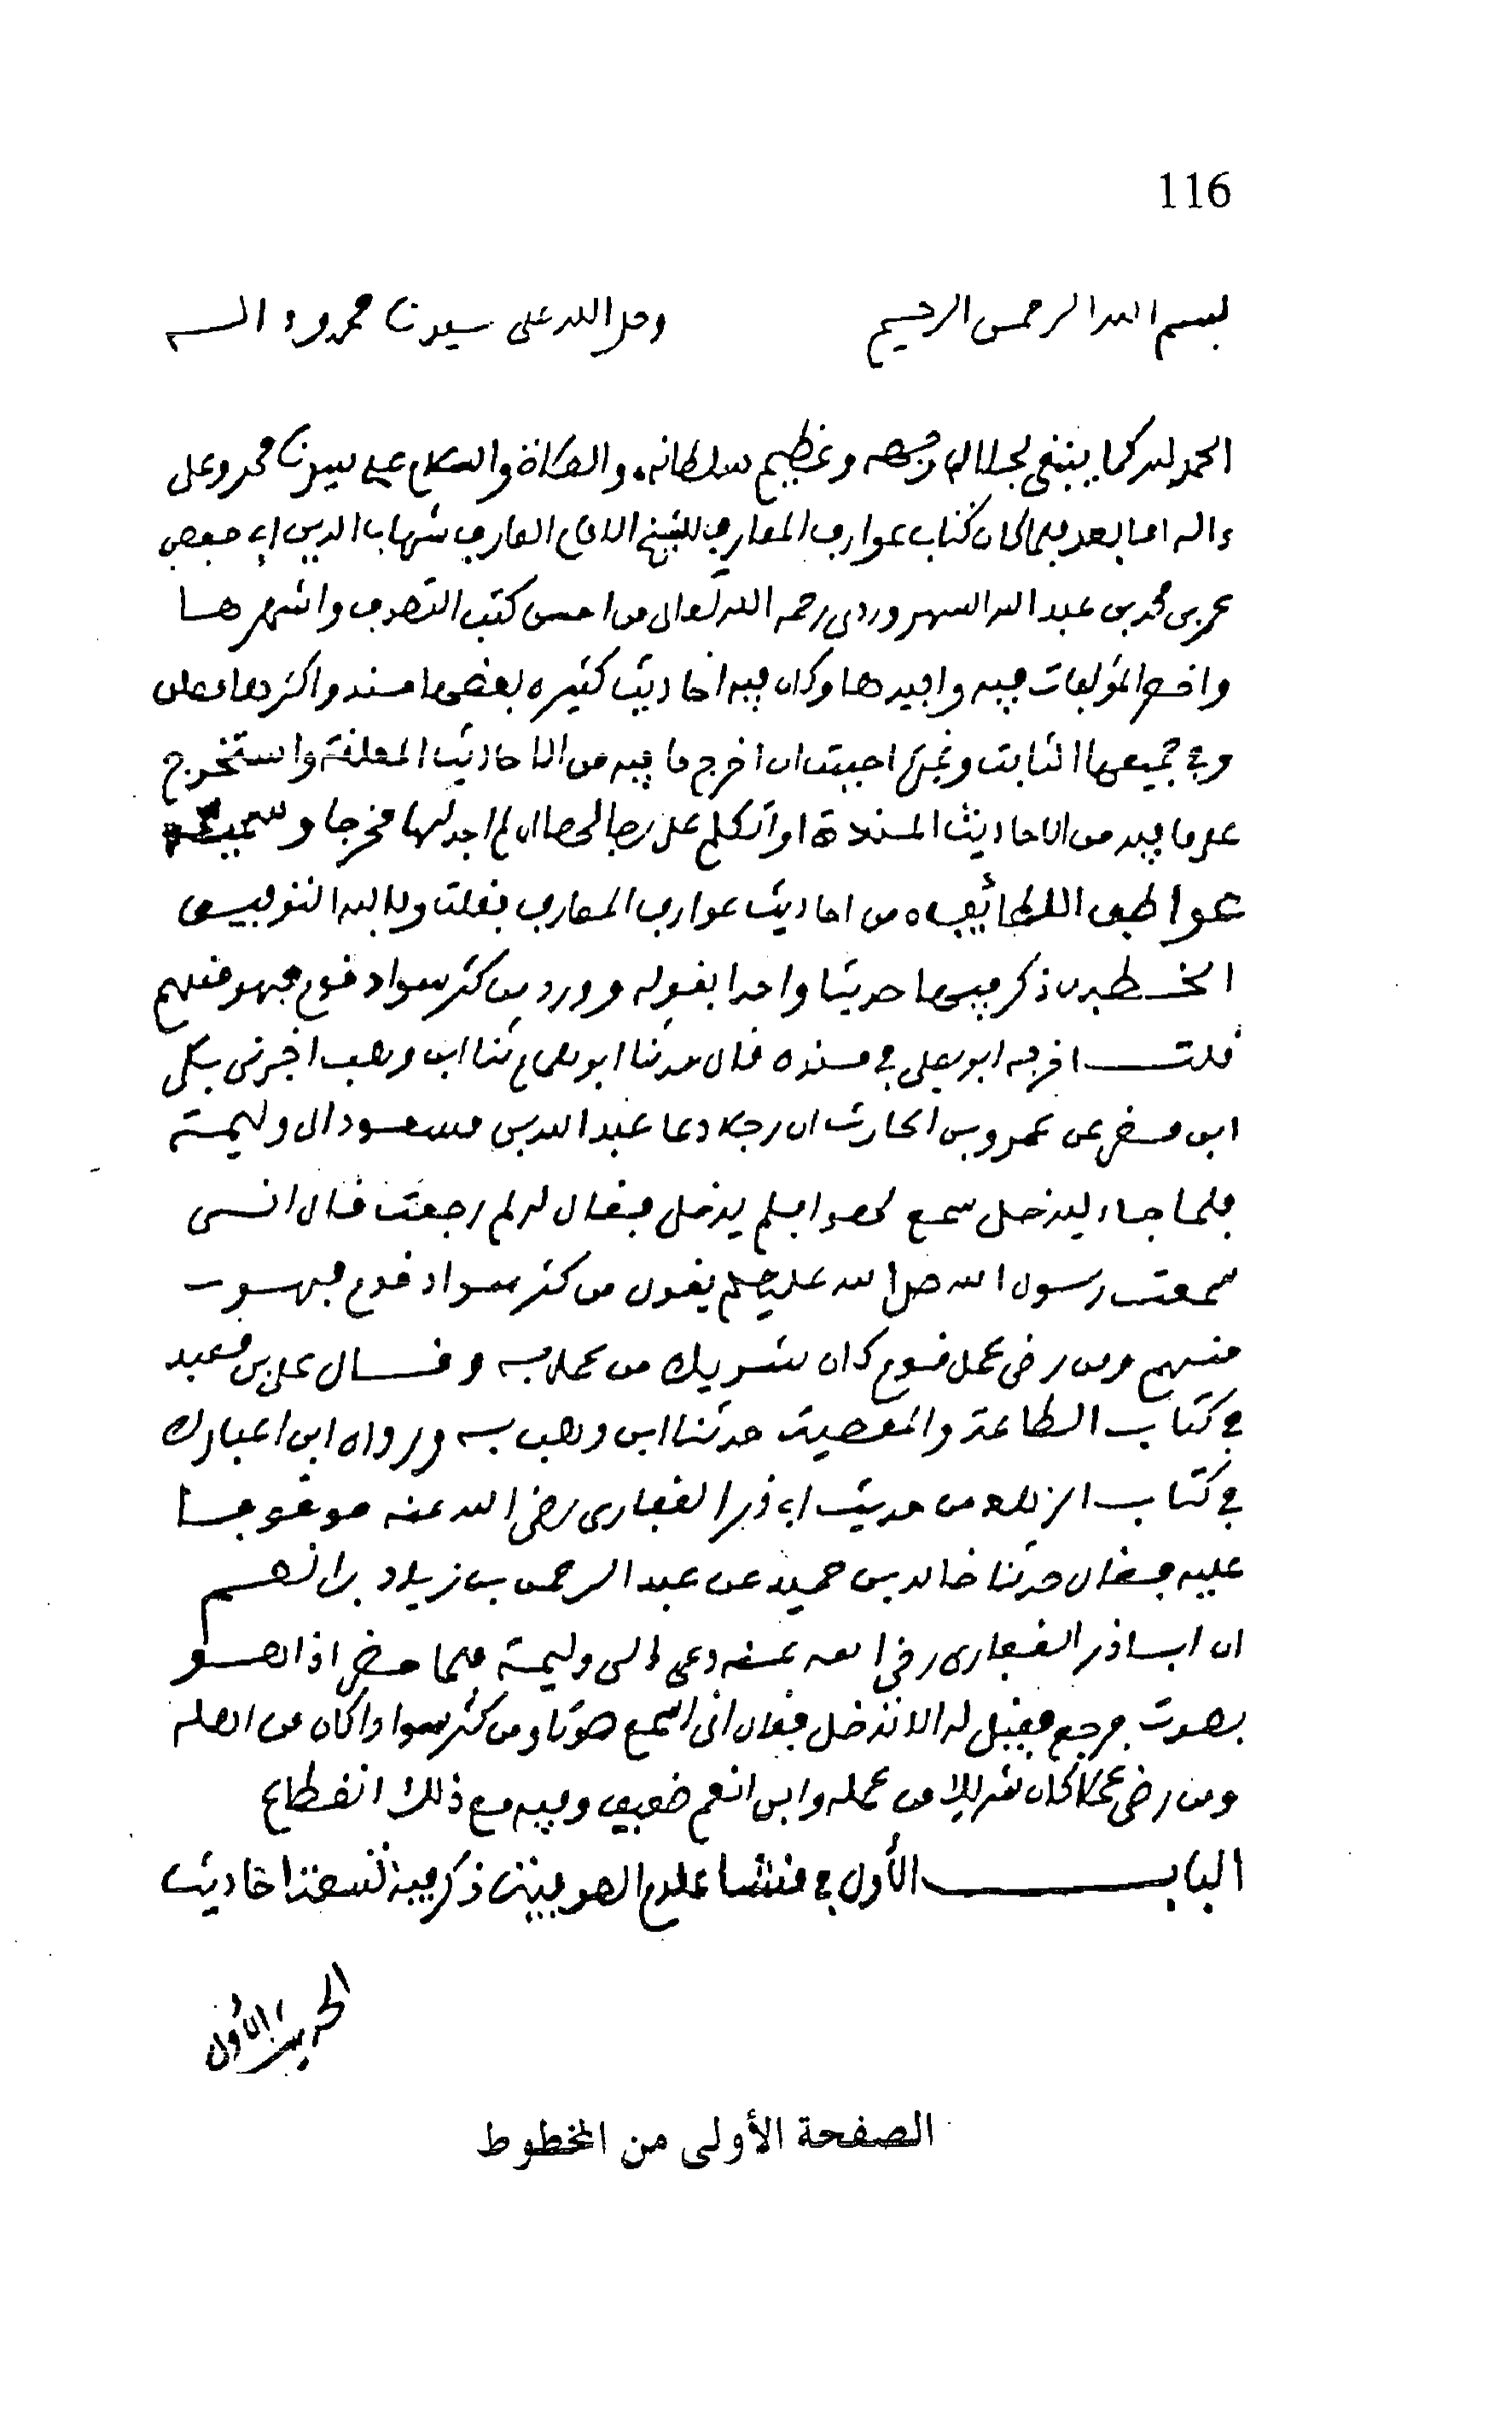 116
بسم الله الرحمن الرحيم وصلى الله على سيدنا محمد وءاله
الحمد لله كما ينبغى لجلال وجهه وعظيم سلطانه، والصلاة والسلام على سيدنا محمد وعلى
ءاله اما بعد فلما كان كتاب عوارف المعارف للشيخ الامام العارف شهاب الدين ابى حفص
عمر بن محمد بن عبد الله السهروردى رحمه الله تعالى من احسن كتب التصوف واشهرها
وانفع المؤلفات فيه وافيدها وكان فيه احاديث كثيره بعضها مسند واكثرها معلق
وفى جميعها الثابت وغيره احببت ان اخرج ما فيه من الاحاديث المعلقة واستخرج
على ما فيه من الاحاديث المسندة او اتكلم على رجالها ان لم اجد لها مخرجا وسميته
عواطف اللطائف من احاديث عوارف المعارف فقلت وبالله التوفيق
الخطبة ذكر فيها حديثا واحدا بقوله وورد من كثر سواد قوم فهو منهم
قلت اخرجه ابو يعلى فى مسنده قال حدثنا ابو همام ثنا ابن وهب اخبرنى بكر
ابن مضر عن عمرو بن الحارث ان رجلا دعا عبد الله بن مسعود الى وليمة
فلما جاء ليدخل سمع لهوا فلم يدخل فقال له لم رجعت قال انى
سمعت رسول الله صلى الله عليه وسلم يقول من كثر سواد قوم فهو
منهم ومن رضى عمل قوم كان شريك من عمل به وقال على بن معبد
فى كتاب الطاعة والمعصية حدثنا ابن وهب به ورواه ابن المبارك
فى كتاب الزهد من حديث ابى ذر الغفارى رضى الله عنه موقوفا
عليه فقال حدثنا خالد بن حميد عن عبد الرحمن بن زياد بن انعم
ان ابا ذر الغفارى رضى الله عنه دعى الى وليمة فلما حضر اذا هو
بصوت فرجع فقيل له الا تدخل فقال انى اسمع صوتا ومن كثر سوادا كان من اهله
ومن رضى عملا كان شريك من عمله وابن انعم ضعيف وفيه مع ذلك انقطاع
الباب الأول فى منشأ علوم الصوفية ذكر فيه تسعة احاديث
الحديث الأول
الصفحة الأولى من المخطوط